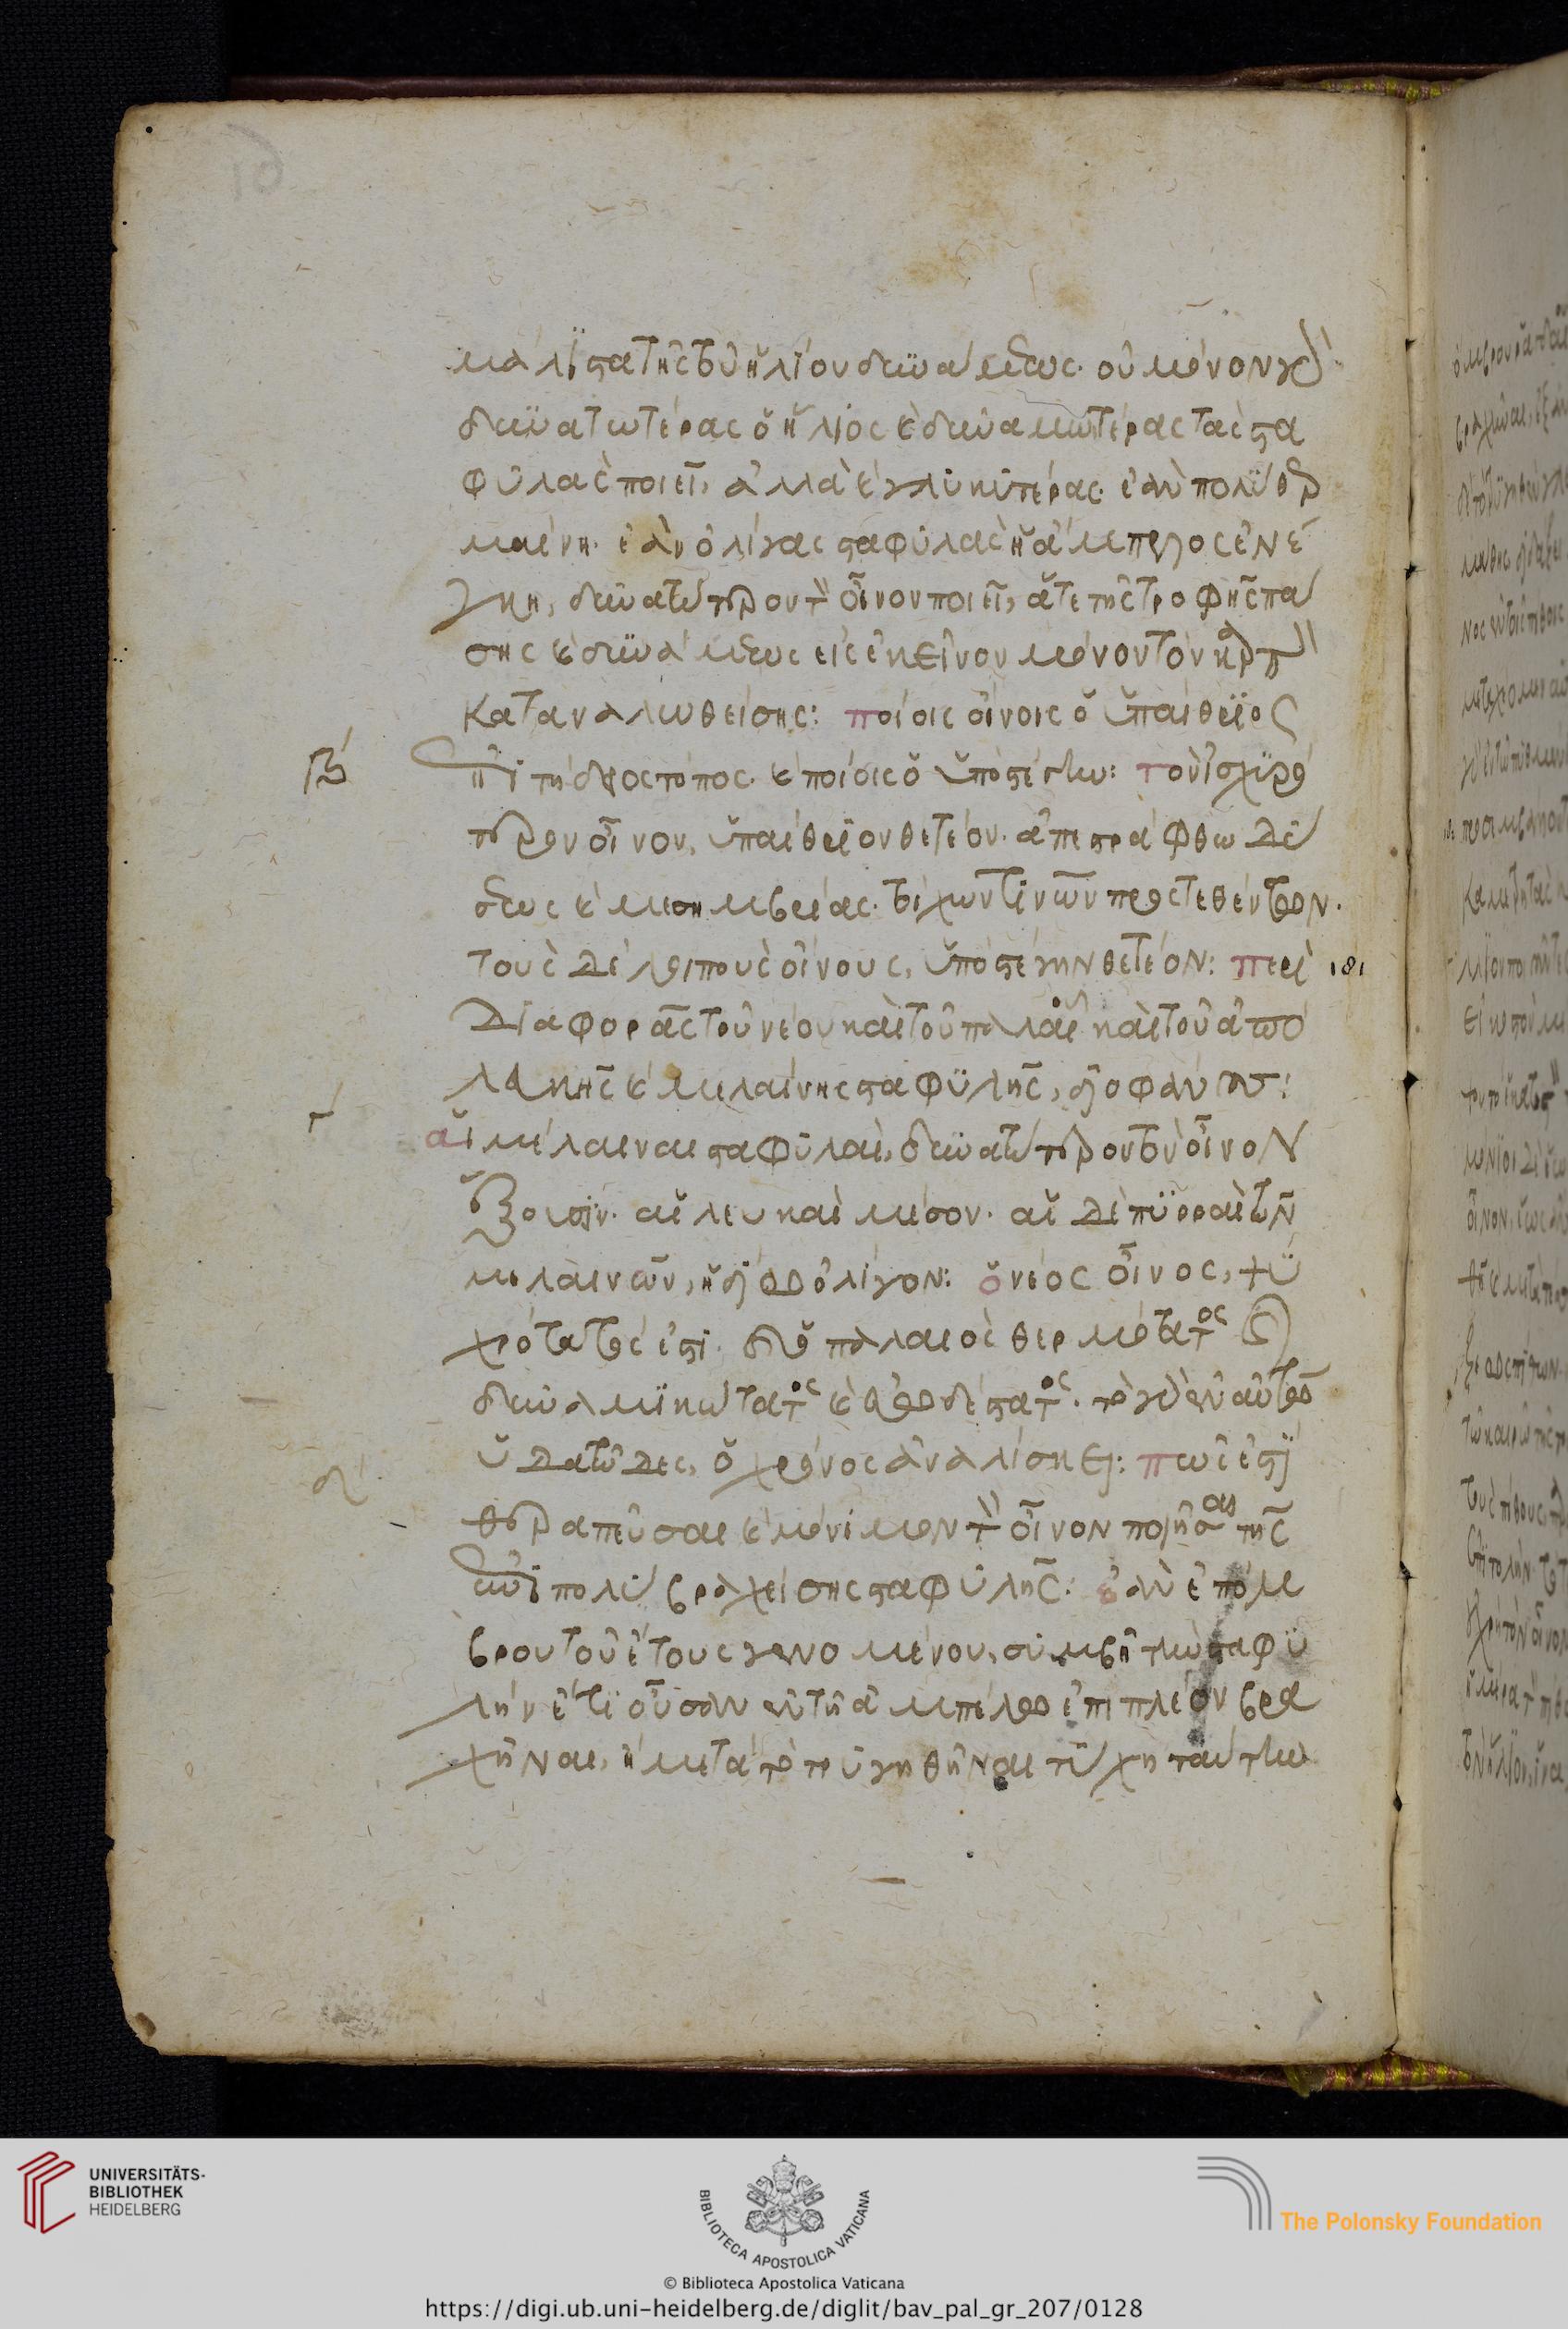 μάλιστα τῆς τοῦ ἡλίου δυνάμεως. οὐ μόνον γὰρ
δυνατωτέρας ὁ ἥλιος καὶ δυναμωτέρας τὰς στα
φυλὰς ποιεῖ, ἀλλὰ καὶ γλυκυτέρας. ἐὰν πολὺ θερ
μαίνη. ἐὰν ὀλίγας σταφυλὰς ἡ ἄμπελος ἐνέ
γκη, δυνατώτερον τὸν οἶνον ποιεῖ, ἅτε τῆς τροφῆς πά
σης καὶ δυνάμεως εἰς ἐκεῖνον μόνον τὸν καρπὸν
καταναλωθείσης: ποίοις οἴνοις ὁ ὑπαίθριος
β ἐπιτήδειος τόπος. καὶ ποίοις ὁ ὑπὸ στέγην: τὸν ἰσχυρό
τερον οἶνον, ὑπαίθριον θετέον. ἀπεστράφθω δὲ
δύσεως καὶ μεσημβρίας. τοίχων τινῶν προστεθέντων.
τοὺς δὲ λοιποὺς οἴνους, ὑπὸ στέγην θετέον: περὶ
διαφορᾶς τοῦ νέου καὶ τοῦ παλαιοῦ καὶ τοῦ ἀπὸ
λευκῆς καὶ μελαίνης σταφυλῆς, διοφάνους:
γ αἱ μέλαιναι σταφυλαὶ, δυνατώτερον τὸν οἶνον
ἕξουσιν. αἱ λευκαὶ μέσον. αἱ δὲ πυρραὶ τῶν
μελαινῶν, ἡδίω ὀλίγον: ὁ νέος οἶνος, ψυ
χρότατός ἐστι. ὁ δὲ παλαιὸς θερμότατος καὶ
δυναμικώτατος καὶ εὐωδέστατος. τὸ γὰρ ἐν αὐτῷ
ὑδατῶδες, ὁ χρόνος ἀναλίσκει: πῶς ἐστι
δ θεραπεῦσαι καὶ μόνιμον τὸν οἶνον ποιῆσαι τῆς
ἐπιπολὺ βραχείσης σταφυλῆς: ἐὰν ἐπόμ
βρου τοῦ ἔτους γενομένου, συμβῇ τὴν σταφυ
λὴν ἔτι οὖσαν ἐν τῇ ἀμπέλῳ ἐπιπλέον βρα
χῆναι, ἢ μετὰ τὸ τρυγηθῆναι τύχῃ ταύτην
UNIVERSITÄTS-
BIBLIOTHEK
HEIDELBERG
BIBLIOTECA APOSTOLICA VATICANA
The Polonsky Foundation
© Biblioteca Apostolica Vaticana
https://digi.ub.uni-heidelberg.de/diglit/bav_pal_gr_207/0128